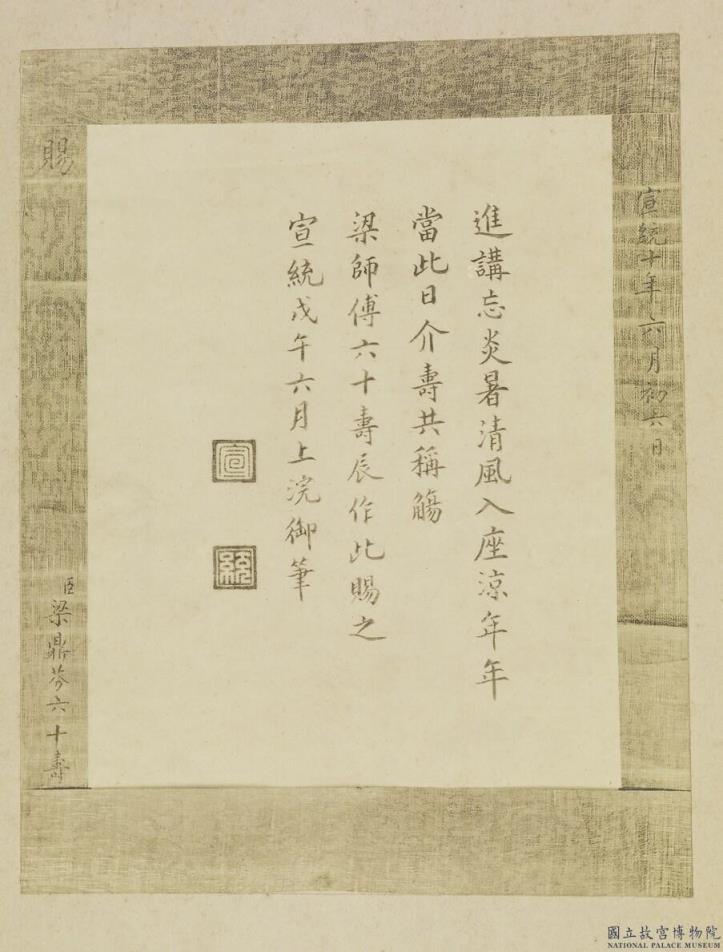 宣統十年六月初六日
進講忘炎暑清風入座涼年年
當此日介壽共稱觴
梁師傅六十壽辰作此賜之
宣統戊午六月上浣御筆
宣
統
賜
臣梁鼎芬六十壽
國立故宮博物院
NATIONAL PALACE MUSEUM